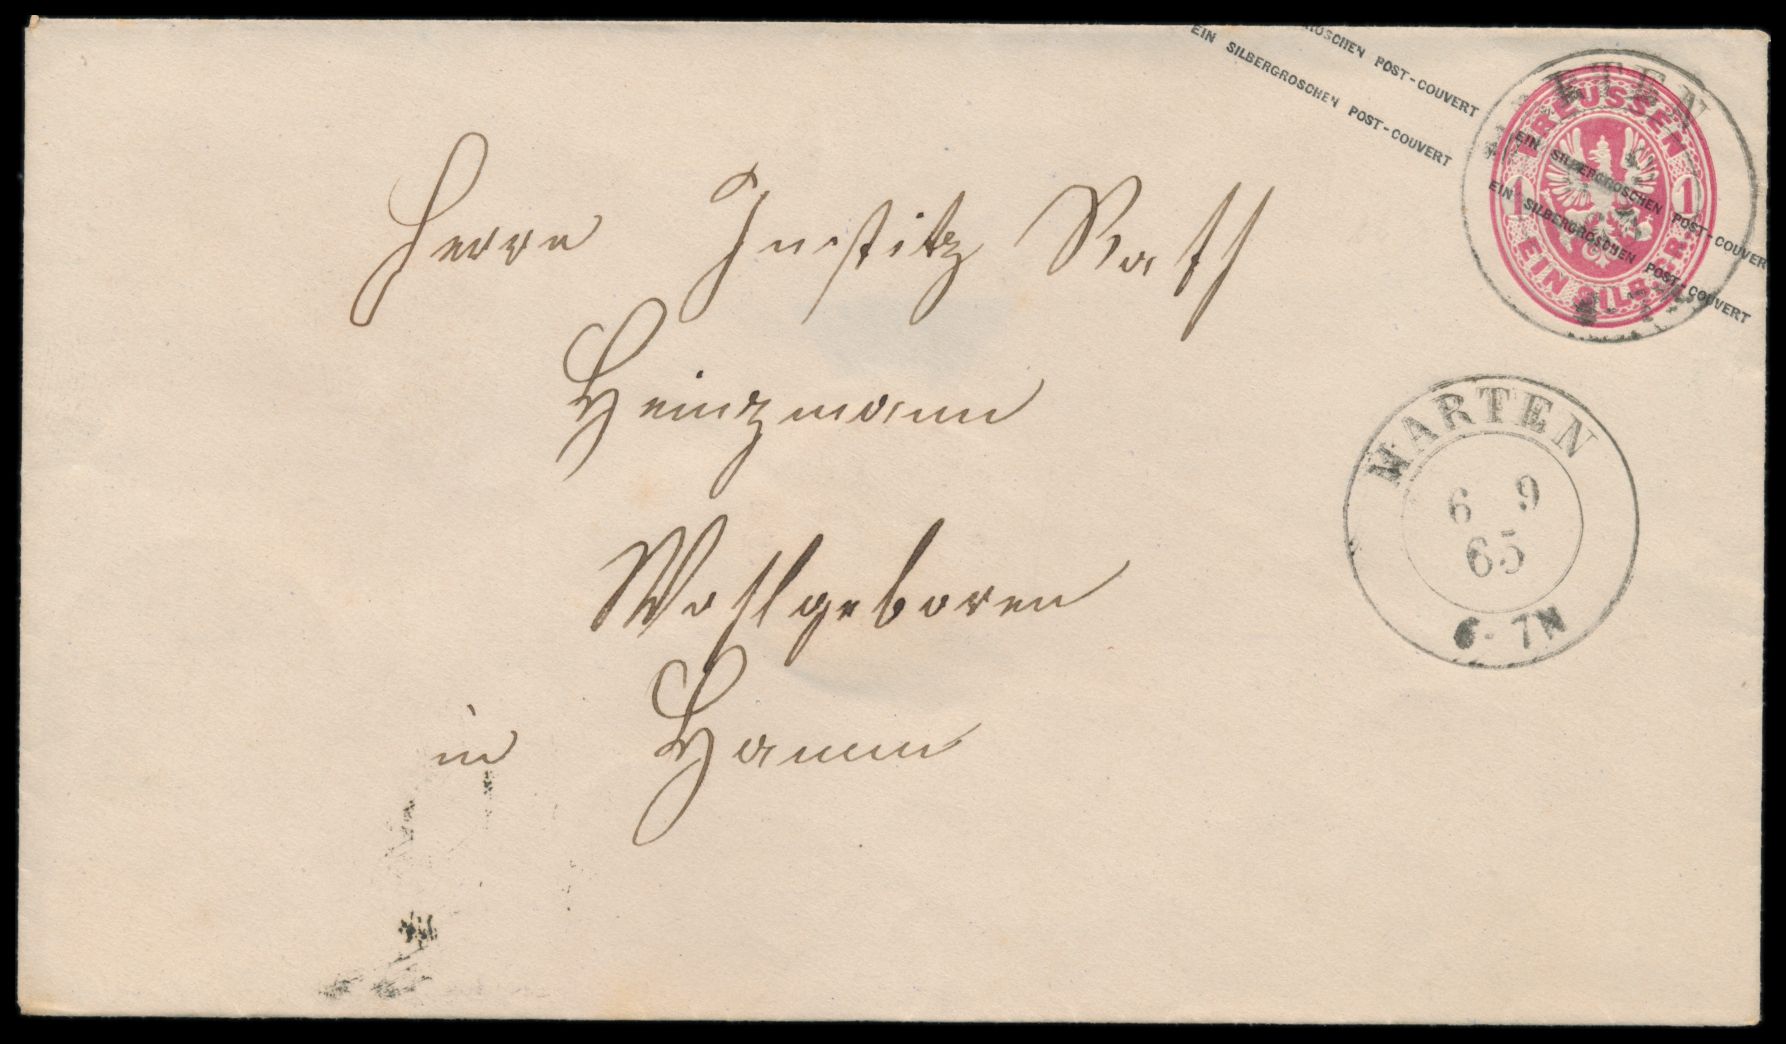 EIN SILBERGROSCHEN POST-COUVERT EIN SILBERGROSCHEN POST-COUVERT
EIN SILBERGROSCHEN POST-COUVERT EIN SILBERGROSCHEN POST-COUVERT
PREUSSEN
1 1
EIN SILBERGR.
Herrn Justitz Rath
Heinzmann
Wohlgeboren
in Hamm
MARTEN
6 9
65
6-7N